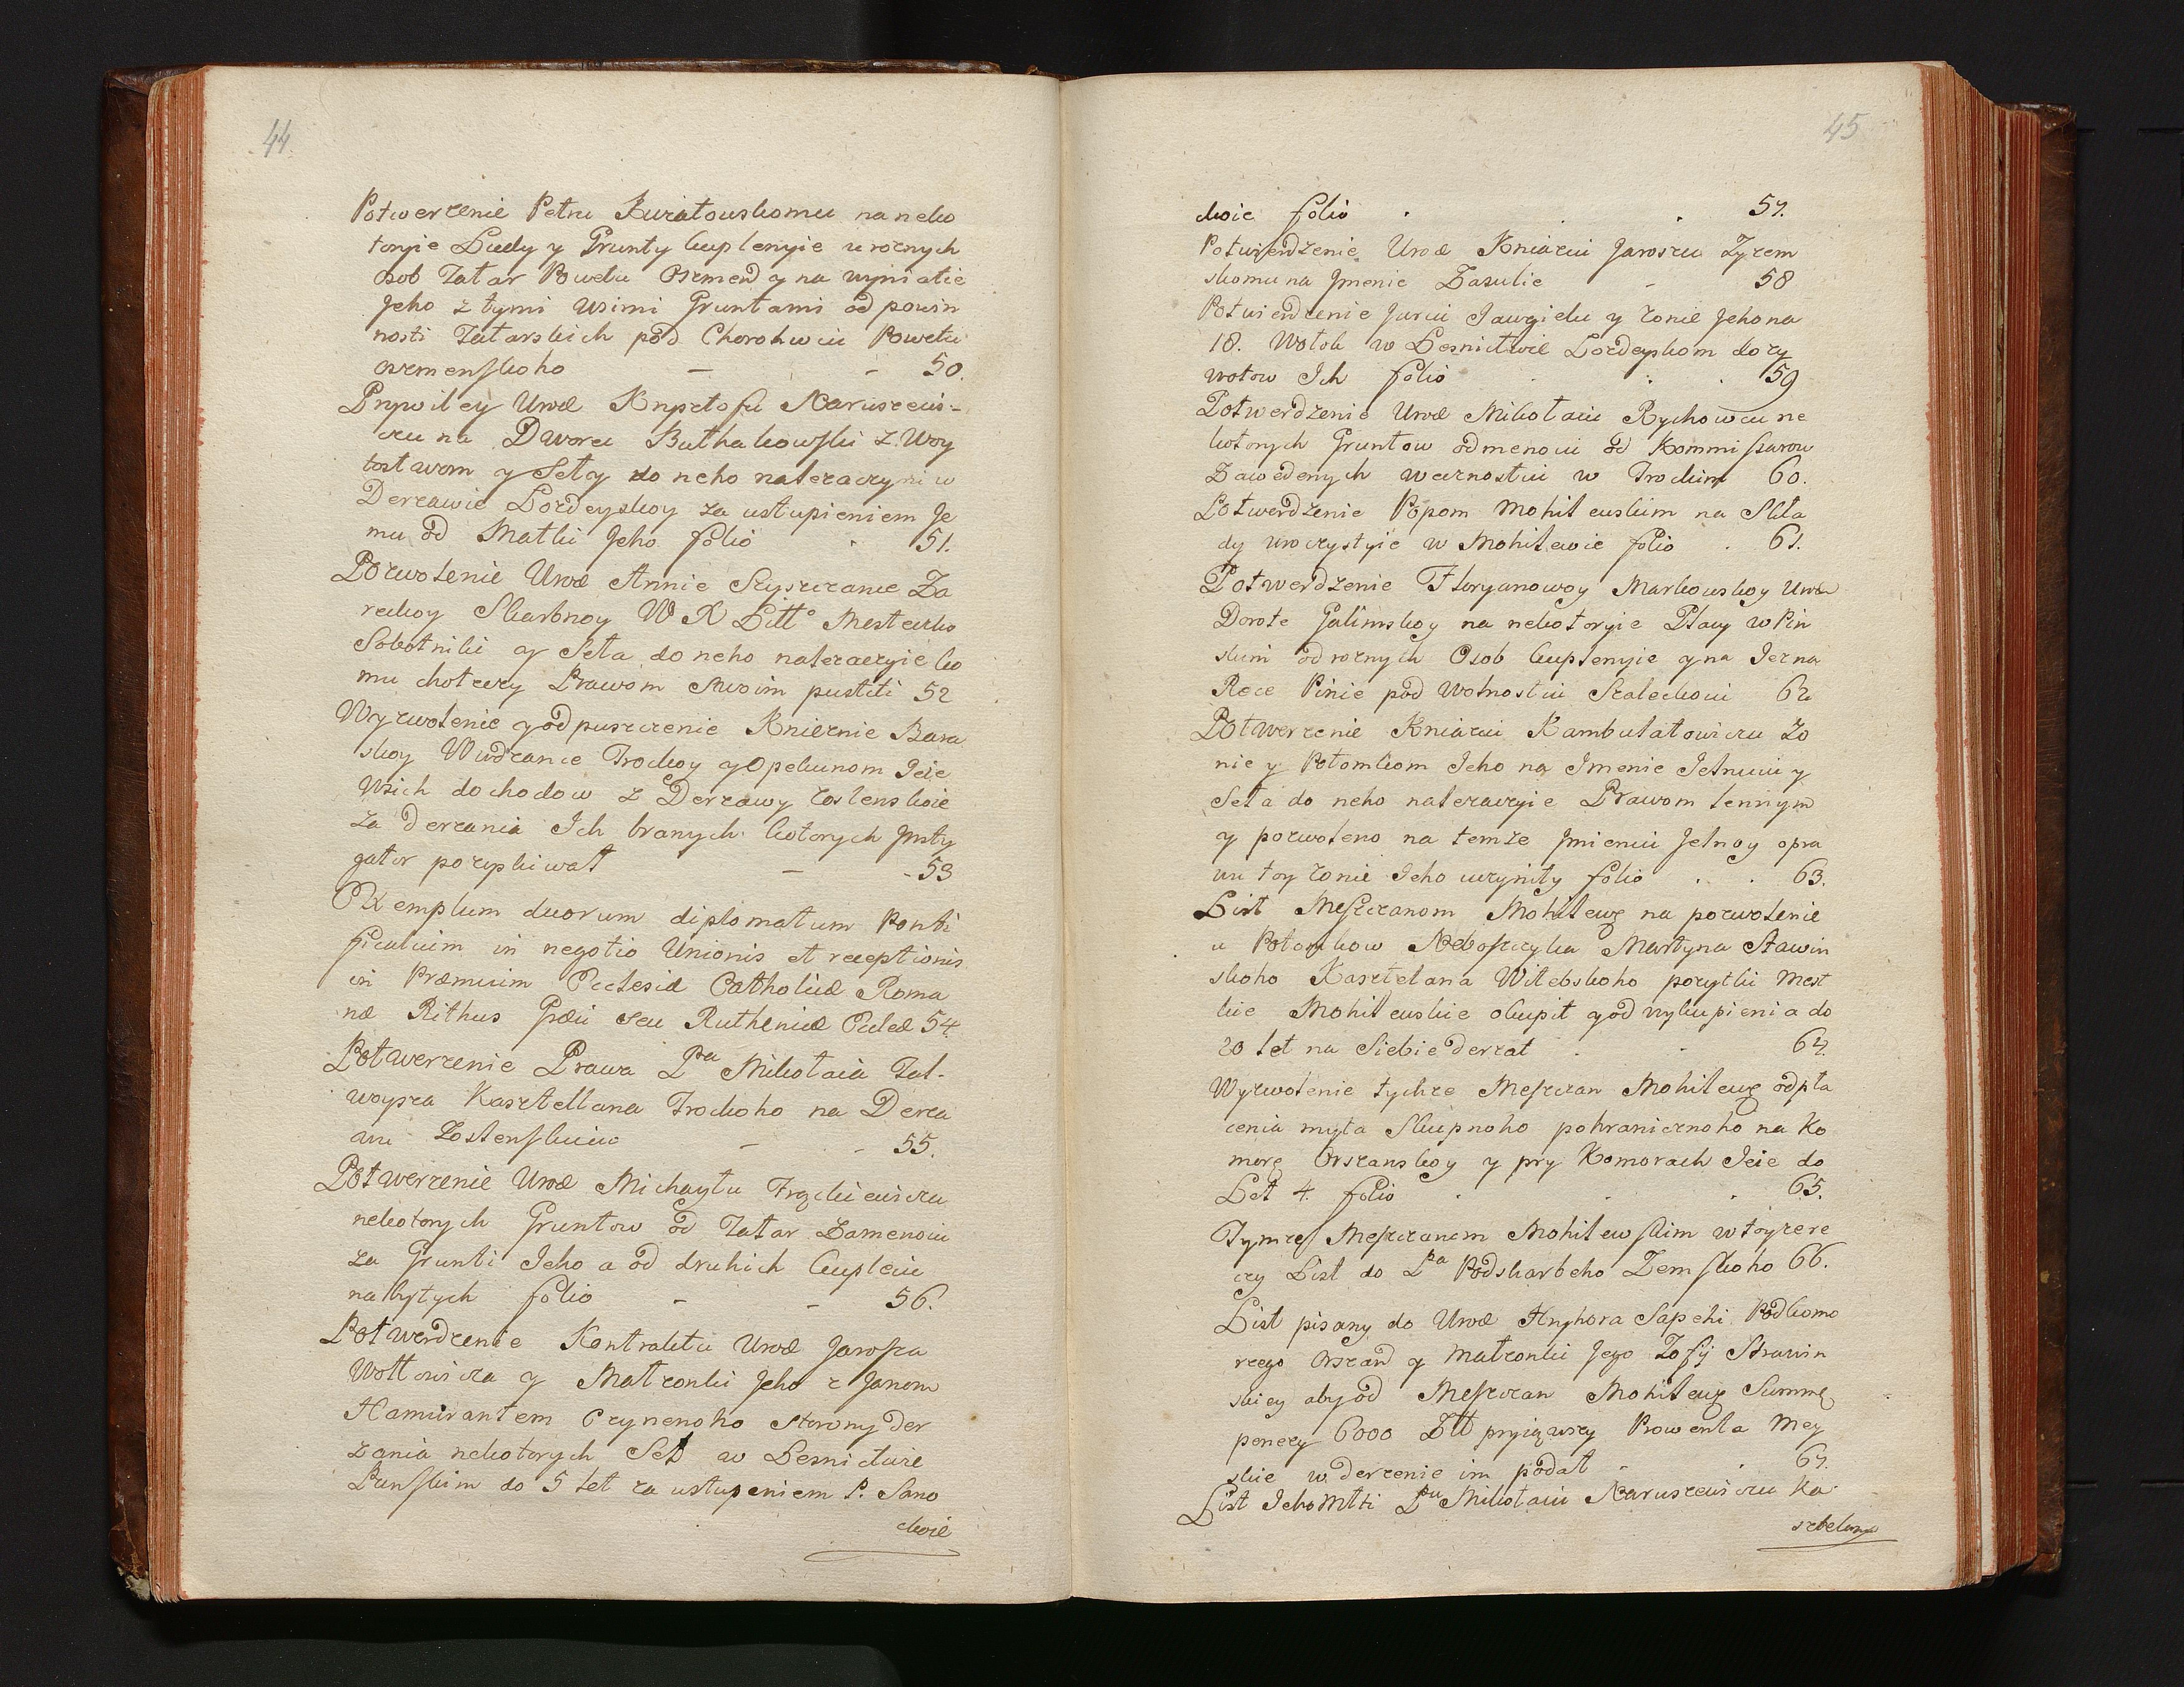 44
Potwerzenie Petru Kwiatowskomu na neko
toryie Ludy y Grunty kuplenyie u roznych
osob Tatar Powetu Oszmend y na wyniatie
Jeho z tymi wsimi Gruntami od powin
nosti Tatarskich pod Chorohwiu Powetu
oszmenskoho - - 50.
Prywiley Urod Krysztofu Naruszewi-
czu na Dworec Butha kowski z Woy
tostwom y Seły do neho należaczymi w
Derzawie Lozdeyskoy za ustupieniem Je
mu od Matki Jeho folio . 51.
Pozwolenie Urod Annie Szyszczance Za
reckoy Skarbnoy W X Litt° Mesteczko
Sobotniki y Seła do neho należaczyie ko
mu choticzy Prawom Swoim pustiti 52
Wyzwolenie y od puszczenie Knieznie Bara
skoy Wwdzance Trockoy y Opekunom Jeie
Wsich dochodow z Derzawy Zoslenskoie
za derzania Jch branych kotorych Jnsty
gator pozyskiwał - - 53
Exemplum duorum diplomatum Ponti
ficalium in negotio Unionis et receptionis
in Præmium Ecclesiæ Catholicæ Roma
næ Rithus Græci seu Ruthenicæ Eccleæ 54.
Potwerzenie Prawa Pna Mikołaia Tal-
woysza Kasztellana Trockoho na Derza
wu Zoslenskuiu - - 55.
Potwerzenie Urod Michayłu Frąckiewiczu
nekotorych Gruntow od Tatar Zamenoiu
za Grunti Jeho a od druhich kupleiu
nabytych folio - - 56.
Potwerdzenie Kontraktu Urod Jarosza
Wołłowicza y Małzonki Jeho z Janom
Hamszantem Czynenoho storony der
zania nekotorych Seł w Lesnictwie
Punskim do 5 let za ustupeniem P. Sano
ckoie
45
ckoie folio . . . 57.
Potwierdzenie Urod Kniaziu Jaroszu Zyzem
skomu na Jmenie Zasulie - 58
Potwierdzenie Juriu Jawgielu y zonie Jeho na
18. Wołok w Lesnictwie Lozdeyskom do zy
wotow Jch folio . . . 59
Potwerdzenie Urod Mikołaiu Rychowcu ne
kotorych Gruntow odmenoiu od Kommissarow
Zawedenych wecznostiu w Trockim 60.
Potwerdzenie Popom Mohilewskim na Skla
dy uroczystyie w Mohilewie folio . 61.
Potwerdzenie Floryanowoy Markowskoy Urod
Dorote Galimskoy na nekotoryie Placy w Pin
skim od roznych Osob kuplenyie y na Jez na
Rece Pinie pod wolnostiu Szlachoiu 62
Potwerzenie Kniaziu Kambulatowiczu zo
nie y Potomkom Jeho na Jmenie Jetnuiu y
Seła do neho należaczyie Prawom lennym
y pozwoleno na temze Jmieniu Jetnoy opra
wu toy zonie Jeho uczynity folio . . 63.
List Meszczanom Mohilewg na pozwolenie
u Potomkow Neboszczyka Martyna Stawin
skoho Kasztelana Witebskoho pozytki Mest
kie Mohilewskie okupit y od wykupienia do
20 let na Siebie derzat . . 64.
Wyzwolenie tychze Meszczan Mohilewg odpła
cenia myta Skupnoho pohranicznoho na Ko
morę Orszanskoy y pry Komorach Jeie do
Let 4. folio . . . 65.
Tymzes Meszczanom Mohilewskim w toyże re
czy List do Pna Podskarbeho Zemskoho 66.
List pisany do Urod Hryhora Sapehi Podkomo
rzego Orszand y Małzonki Jego Zofij Strawin
skiey aby od Meszczan Mohilewg Summę
penezy 6000 Złł pryiąwszy Prowenta Mey
skie w derzenie im podał . . 67.
List JehoMłti Pnu Mikołaiu Naruszewiczu Ka
sztelany